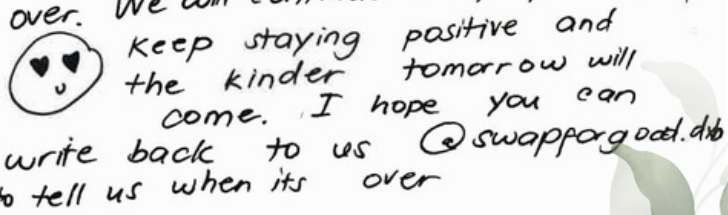 over. We will
Keep staying positive and
the kinder tomorrow will
come. I hope you can
write back to us @swapforgood.dxb
to tell us when its over